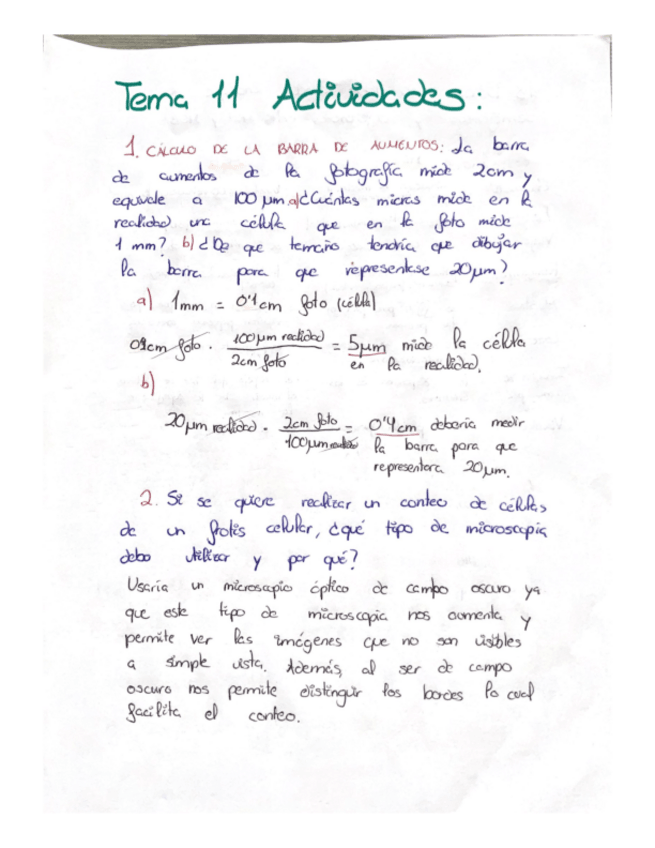 Tema 11 Actividades:
1. CÁLCULO DE LA BARRA DE AUMENTOS: La barra
de aumentos de la fotografía mide 2cm y
equivale a 100 µm. a) ¿Cuántas micras mide en la
realidad una célula que en la foto mide
1 mm? b) ¿De que tamaño tendría que dibujar
la barra para que representase 20µm?
a) 1mm = 0'1cm foto (célula)
0'1cm foto · 100µm realidad / 2cm foto = 5µm mide la célula
en la realidad.
b)
20µm realidad · 2cm foto / 100µm realidad = 0'4cm debería medir
la barra para que
representara 20µm.
2. Si se quiere realizar un conteo de células
de un frotis celular, ¿qué tipo de microscopia
debo utilizar y por qué?
Usaría un microscopio óptico de campo oscuro ya
que este tipo de microscopia nos aumenta y
permite ver las imágenes que no son visibles
a simple vista. Además, al ser de campo
oscuro nos permite distinguir los bordes lo cual
facilita el conteo.